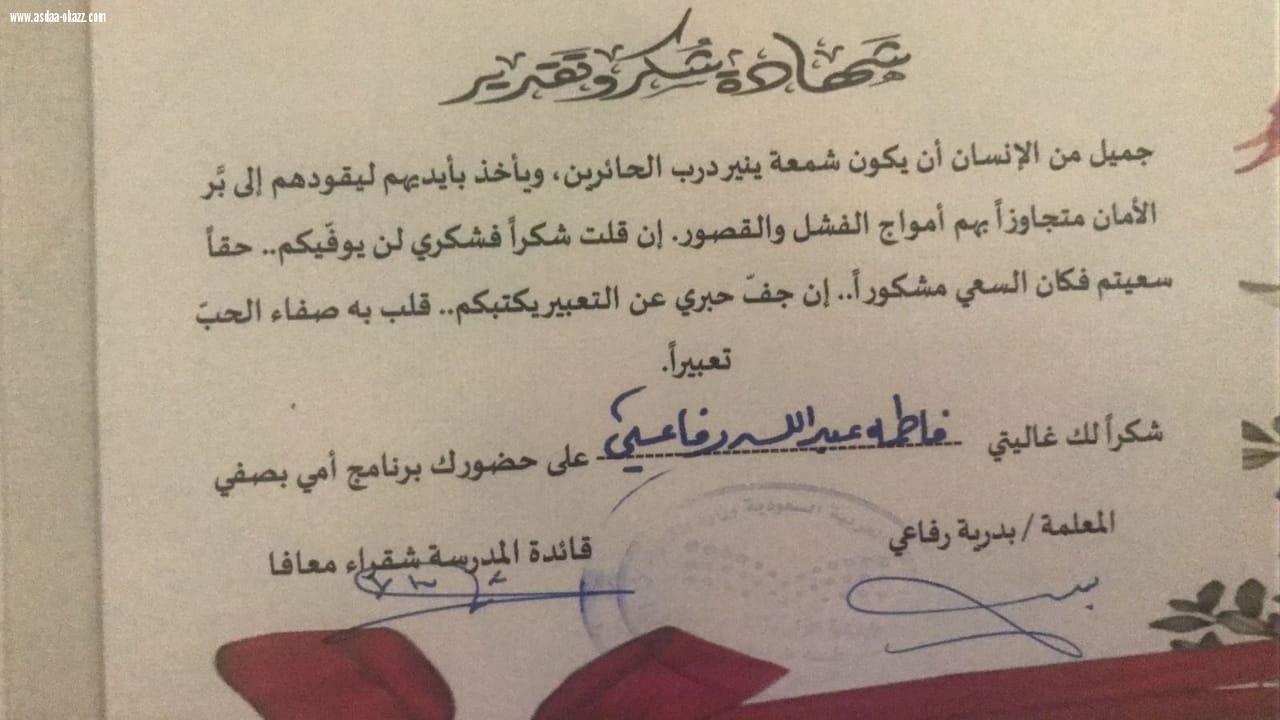 www.asdaa-okazz.com
شهادة شكر وتقدير
جميل من الإنسان أن يكون شمعة ينير درب الحائرين، ويأخذ بأيديهم ليقودهم إلى بًّر
الأمان متجاوزاً بهم أمواج الفشل والقصور. إن قلت شكراً فشكري لن يوفّيكم.. حقاً
سعيتم فكان السعي مشكوراً.. إن جفّ حبري عن التعبير يكتبكم.. قلب به صفاء الحبّ
تعبيراً.
شكراً لك غاليتي فاطمه عبدالله رفاعي على حضورك برنامج أمي بصفي
المعلمة / بدرية رفاعي
قائدة المدرسة شقراء معافا
العربية السعودية